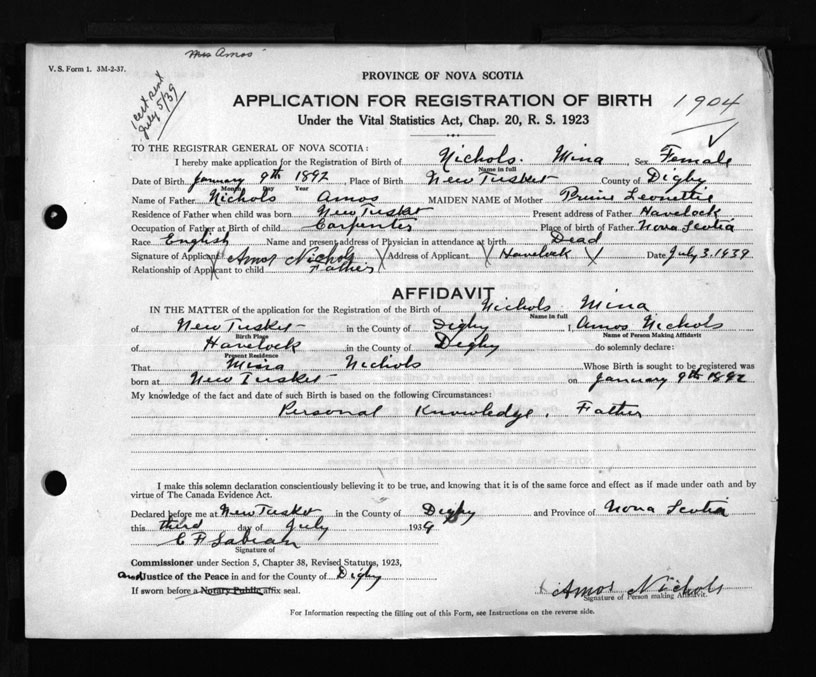 Mrs Amos
V. S. Form 1. 3M-2-37.
1 cert sent
July 5/39
PROVINCE OF NOVA SCOTIA
APPLICATION FOR REGISTRATION OF BIRTH
1904
Under the Vital Statistics Act, Chap. 20, R. S. 1923
TO THE REGISTRAR GENERAL OF NOVA SCOTIA:
I hereby make application for the Registration of Birth of Nichols. Mina Sex Female
Name in full
Date of Birth January 9th 1892, Place of Birth New Tusket County of Digby
Month Day Year
Name of Father Nichols Amos MAIDEN NAME of Mother Prime Leonettie
Residence of Father when child was born New Tusket Present address of Father Havelock
Occupation of Father at Birth of child Carpenter Place of birth of Father Nova Scotia
Race English Name and present address of Physician in attendance at birth Dead
Signature of Applicant Amos Nichols Address of Applicant Havelock Date July 3. 1939
Relationship of Applicant to child Father
AFFIDAVIT
IN THE MATTER of the application for the Registration of the Birth of Nichols Mina
Name in full
of New Tusket in the County of Digby I, Amos Nichols
Birth Place Name of Person Making Affidavit
of Havelock in the County of Digby do solemnly declare:
Present Residence
That Mina Nichols Whose Birth is sought to be registered was
born at New Tusket on January 9th 1892
My knowledge of the fact and date of such Birth is based on the following Circumstances:
Personal Knowledge. Father
I make this solemn declaration conscientiously believing it to be true, and knowing that it is of the same force and effect as if made under oath and by
virtue of The Canada Evidence Act.
Declared before me at New Tusket in the County of Digby and Province of Nova Scotia
this third day of July 1939
C F Sabean
Signature of
Commissioner under Section 5, Chapter 38, Revised Statutes, 1923,
and Justice of the Peace in and for the County of Digby
If sworn before a Notary Public affix seal.
Amos Nichols
Signature of Person making Affidavit.
For Information respecting the filling out of this Form, see Instructions on the reverse side.